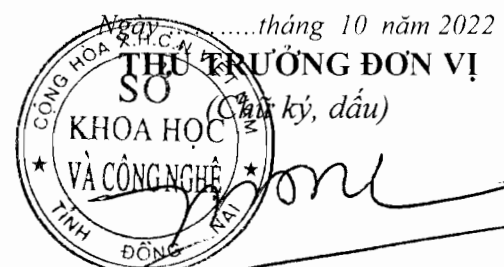 Ngày ...........tháng 10 năm 2022
THỦ TRƯỞNG ĐƠN VỊ
(Chữ ký, dấu)
CỘNG HÒA X.H.C.N VIỆT NAM
SỞ
KHOA HỌC
VÀ CÔNG NGHỆ
TỈNH ĐỒNG NAI